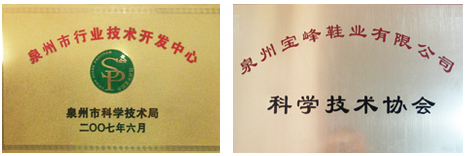 泉州市行业技术开发中心
SP
泉州市科学技术局
二〇〇七年六月
泉州宝峰鞋业有限公司
科学技术协会